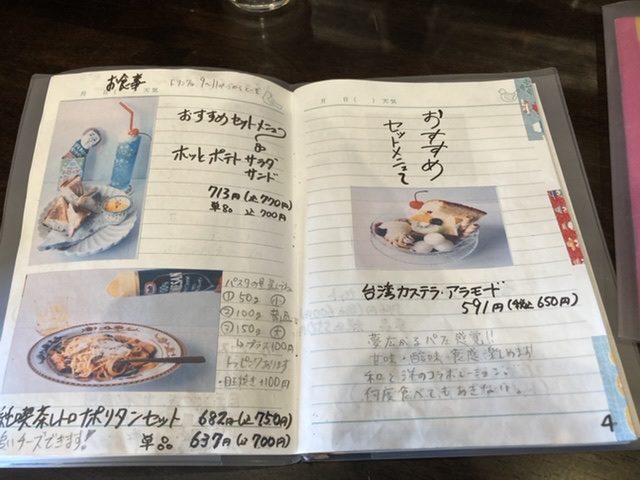 お食事
月 日( ) 天気
おすすめセットメニュー
ホッとポテトサラダ
サンド
713円(込770円)
単品 込700円
パスタの量
① 50g 小
② 100g 普通
③ 150g 大
プラス100円
トッピングあります
・目玉焼き+100円
純喫茶レトロナポリタンセット 682円(込750円)
追いチーズできます!
単品 637円(込700円)
月 日( ) 天気
おすすめ
セットメニュー
台湾カステラ・アラモード
591円(税込650円)
夢広がるパフェ感覚!!
甘味・酸味・食感 楽しめます
和と洋のコラボレーション。
何度食べてもあきない。
4